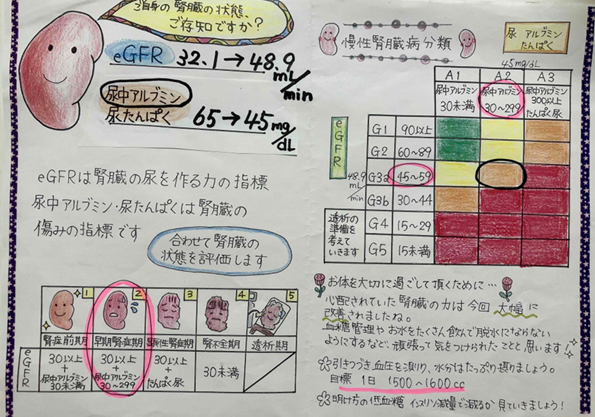 ご自身の腎臓の状態、
ご存知ですか?
eGFR 32.1→48.9 mL/min
尿中アルブミン
尿たんぱく 65→45 mg/dL
eGFRは腎臓の尿を作る力の指標
尿中アルブミン・尿たんぱくは腎臓の
傷みの指標です
合わせて腎臓の
状態を評価します
1 2 3 4 5
腎症前期 早期腎症期 顕性腎症期 腎不全期 透析期
eGFR
30以上 + 尿中アルブミン 30未満
30以上 + 尿中アルブミン 30~299
30以上 + たんぱく尿
30未満
慢性腎臓病分類
尿 アルブミン
たんぱく
45mg/dL
A1 A2 A3
尿中アルブミン 30未満
尿中アルブミン 30~299
尿中アルブミン 300以上 たんぱく尿
eGFR
G1 90以上
G2 60~89
48.9 mL/min
G3a 45~59
G3b 30~44
透析の
準備を
考えて
いきます
G4 15~29
G5 15未満
お体を大切に過ごして頂くために…
心配されていた腎臓の力は今回 大幅に
改善されましたね。
血糖管理やお水をたくさん飲んで脱水にならない
ようにするなど、頑張って気をつけられたことと思います!
引きつづき、血圧を測り、水分はたっぷり摂りましょう。
目標 1日 1500~1600cc
明け方の低血糖 インスリン減量で減るか見ていきましょう!